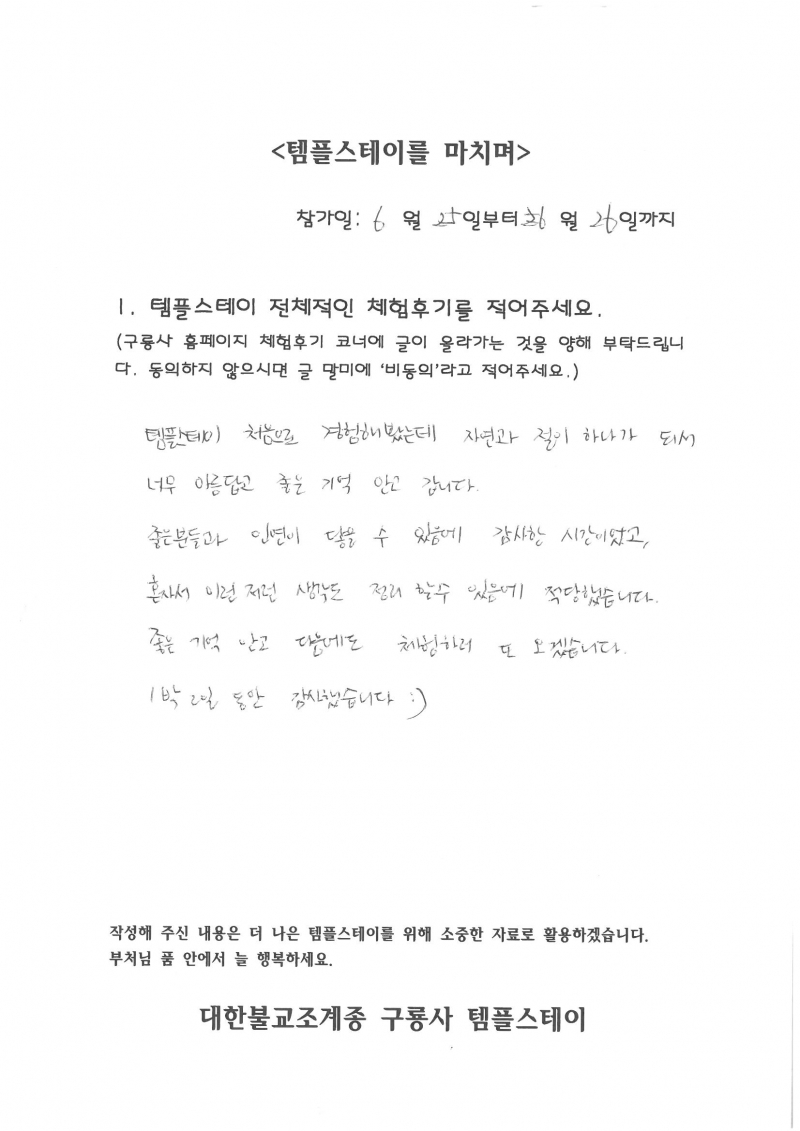 <템플스테이를 마치며>
참가일: 6 월 25일부터 6 월 26일까지
1. 템플스테이 전체적인 체험후기를 적어주세요.
(구룡사 홈페이지 체험후기 코너에 글이 올라가는 것을 양해 부탁드립니
다. 동의하지 않으시면 글 말미에 '비동의'라고 적어주세요.)
템플스테이 처음으로 경험해봤는데 자연과 절이 하나가 되서
너무 아름답고 좋은 기억 안고 갑니다.
좋은분들과 인연이 닿을 수 있음에 감사한 시간이었고,
혼자서 이런 저런 생각도 정리 할수 있음에 적당했습니다.
좋은 기억 안고 다음에도 체험하러 또 오겠습니다.
1박 2일 동안 감사했습니다 :)
작성해 주신 내용은 더 나은 템플스테이를 위해 소중한 자료로 활용하겠습니다.
부처님 품 안에서 늘 행복하세요.
대한불교조계종 구룡사 템플스테이